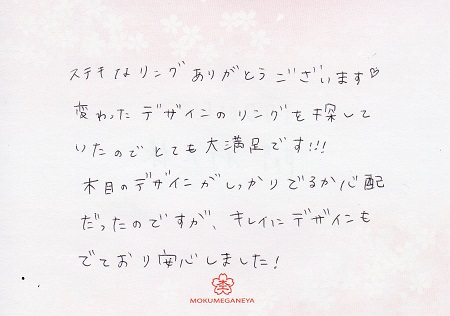 ステキなリングありがとうございます♡
変わったデザインのリングを探して
いたのでとても大満足です!!!
木目のデザインがしっかりでるか心配
だったのですが、キレイにデザインも
でており安心しました!
MOKUMEGANEYA